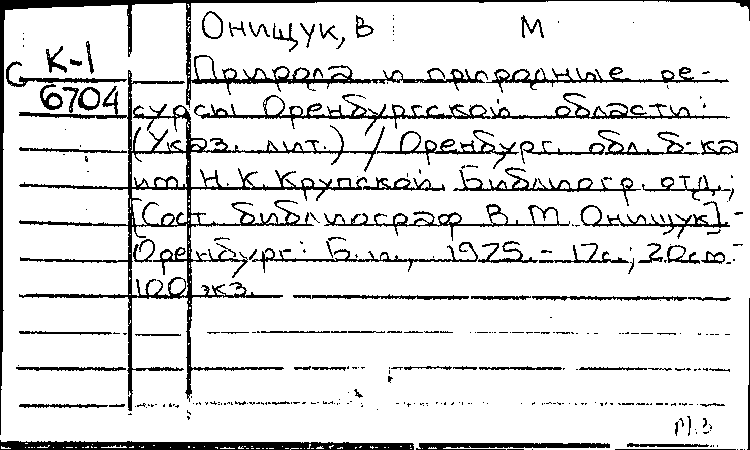 Онищук, В М
С К-1
6704
Природа и природные ре-
сурсы Оренбургской области:
(Указ. лит.) / Оренбург. обл. б-ка
им. Н. К. Крупской. Библиогр. отд.;
[Сост. библиограф В. М. Онищук]. -
Оренбург: Б.и., 1975. - 17с.; 20см. -
100 экз.